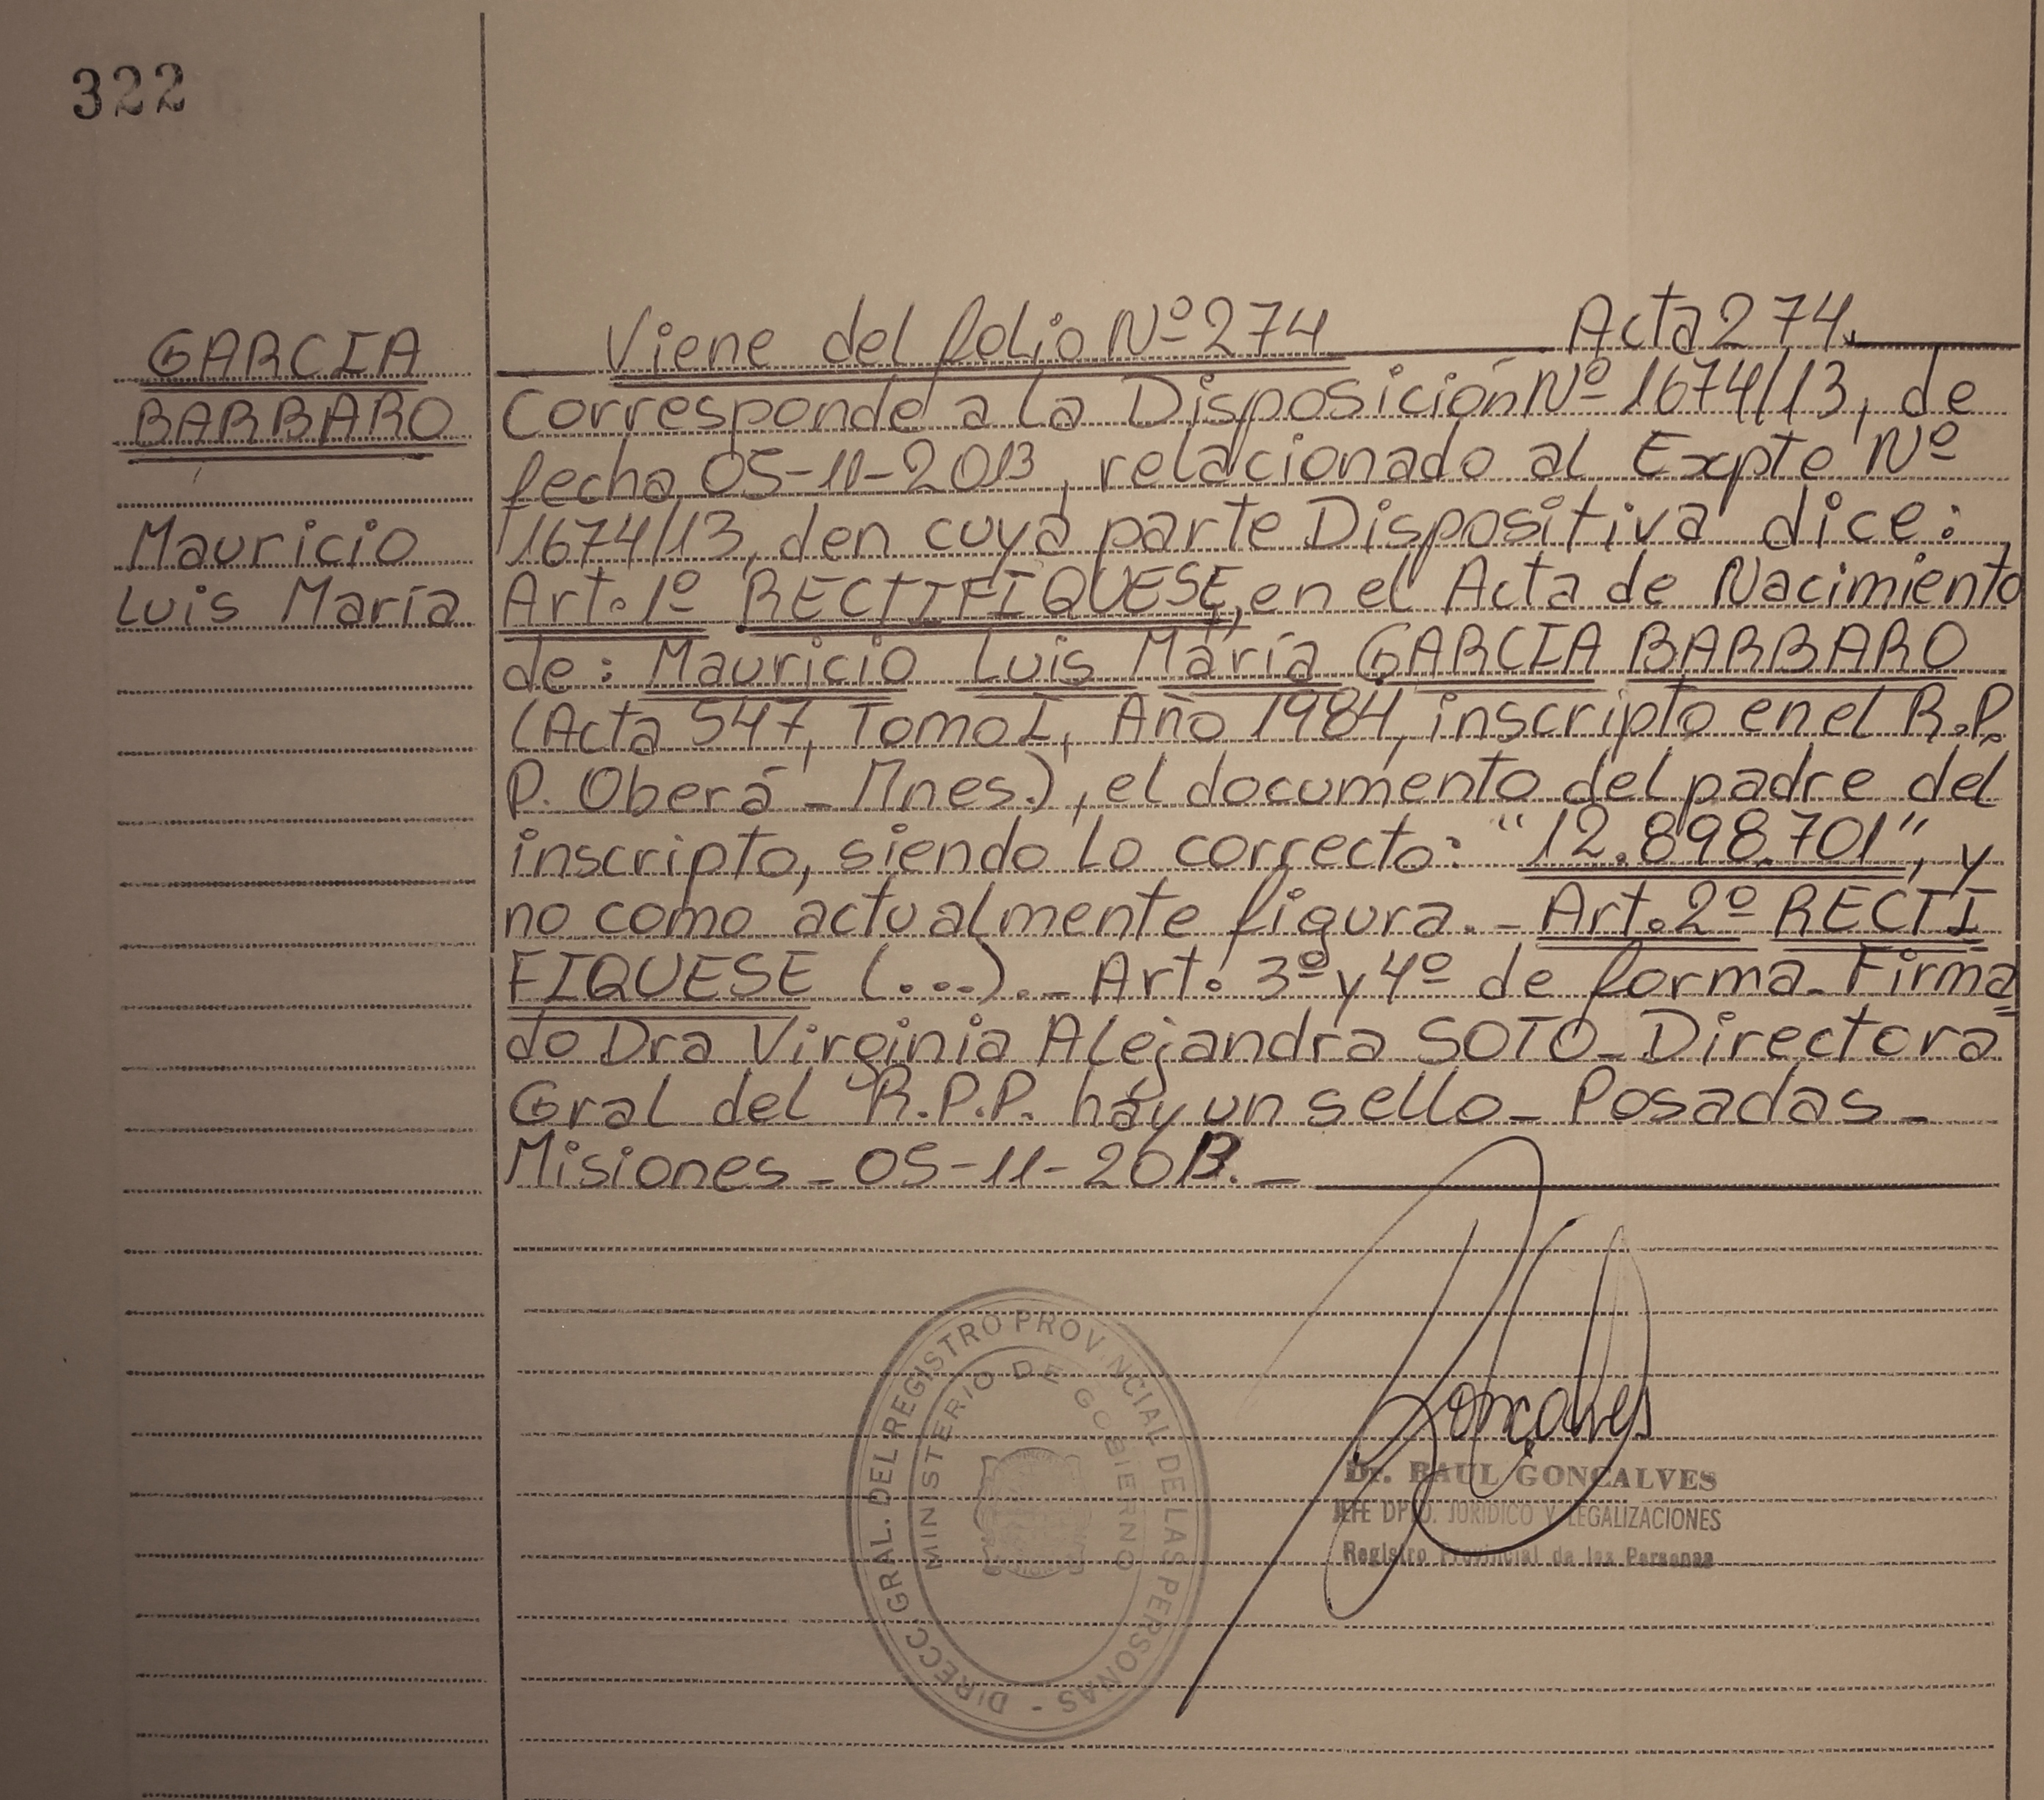 322
GARCIA
BARBARO
Mauricio
Luis María
Viene del folio Nº 274 Acta 274.
Corresponde a la Disposición Nº 1674/13, de
fecha 05-11-2013, relacionado al Expte Nº
1674/13, den cuya parte Dispositiva dice:
Art. 1º RECTIFIQUESE, en el Acta de Nacimiento
de: Mauricio Luis María GARCIA BARBARO
(Acta 547, Tomo I, Año 1984, inscripto en el R.P.
P. Oberá - Mnes.), el documento del padre del
inscripto, siendo lo correcto: "12.898.701", y
no como actualmente figura. - Art. 2º RECTI
FIQUESE (...). - Art. 3º y 4º de forma - Firma
do Dra Virginia Alejandra SOTO - Directora
Gral del R.P.P. hay un sello - Posadas -
Misiones - 05-11-2013. -
DIRECC. GRAL. DEL REGISTRO PROVINCIAL DE LAS PERSONAS -
MINISTERIO DE GOBIERNO
Gonçalves
Dr. RAUL GONCALVES
JEFE DPTO. JURIDICO Y LEGALIZACIONES
Registro Provincial de las Personas